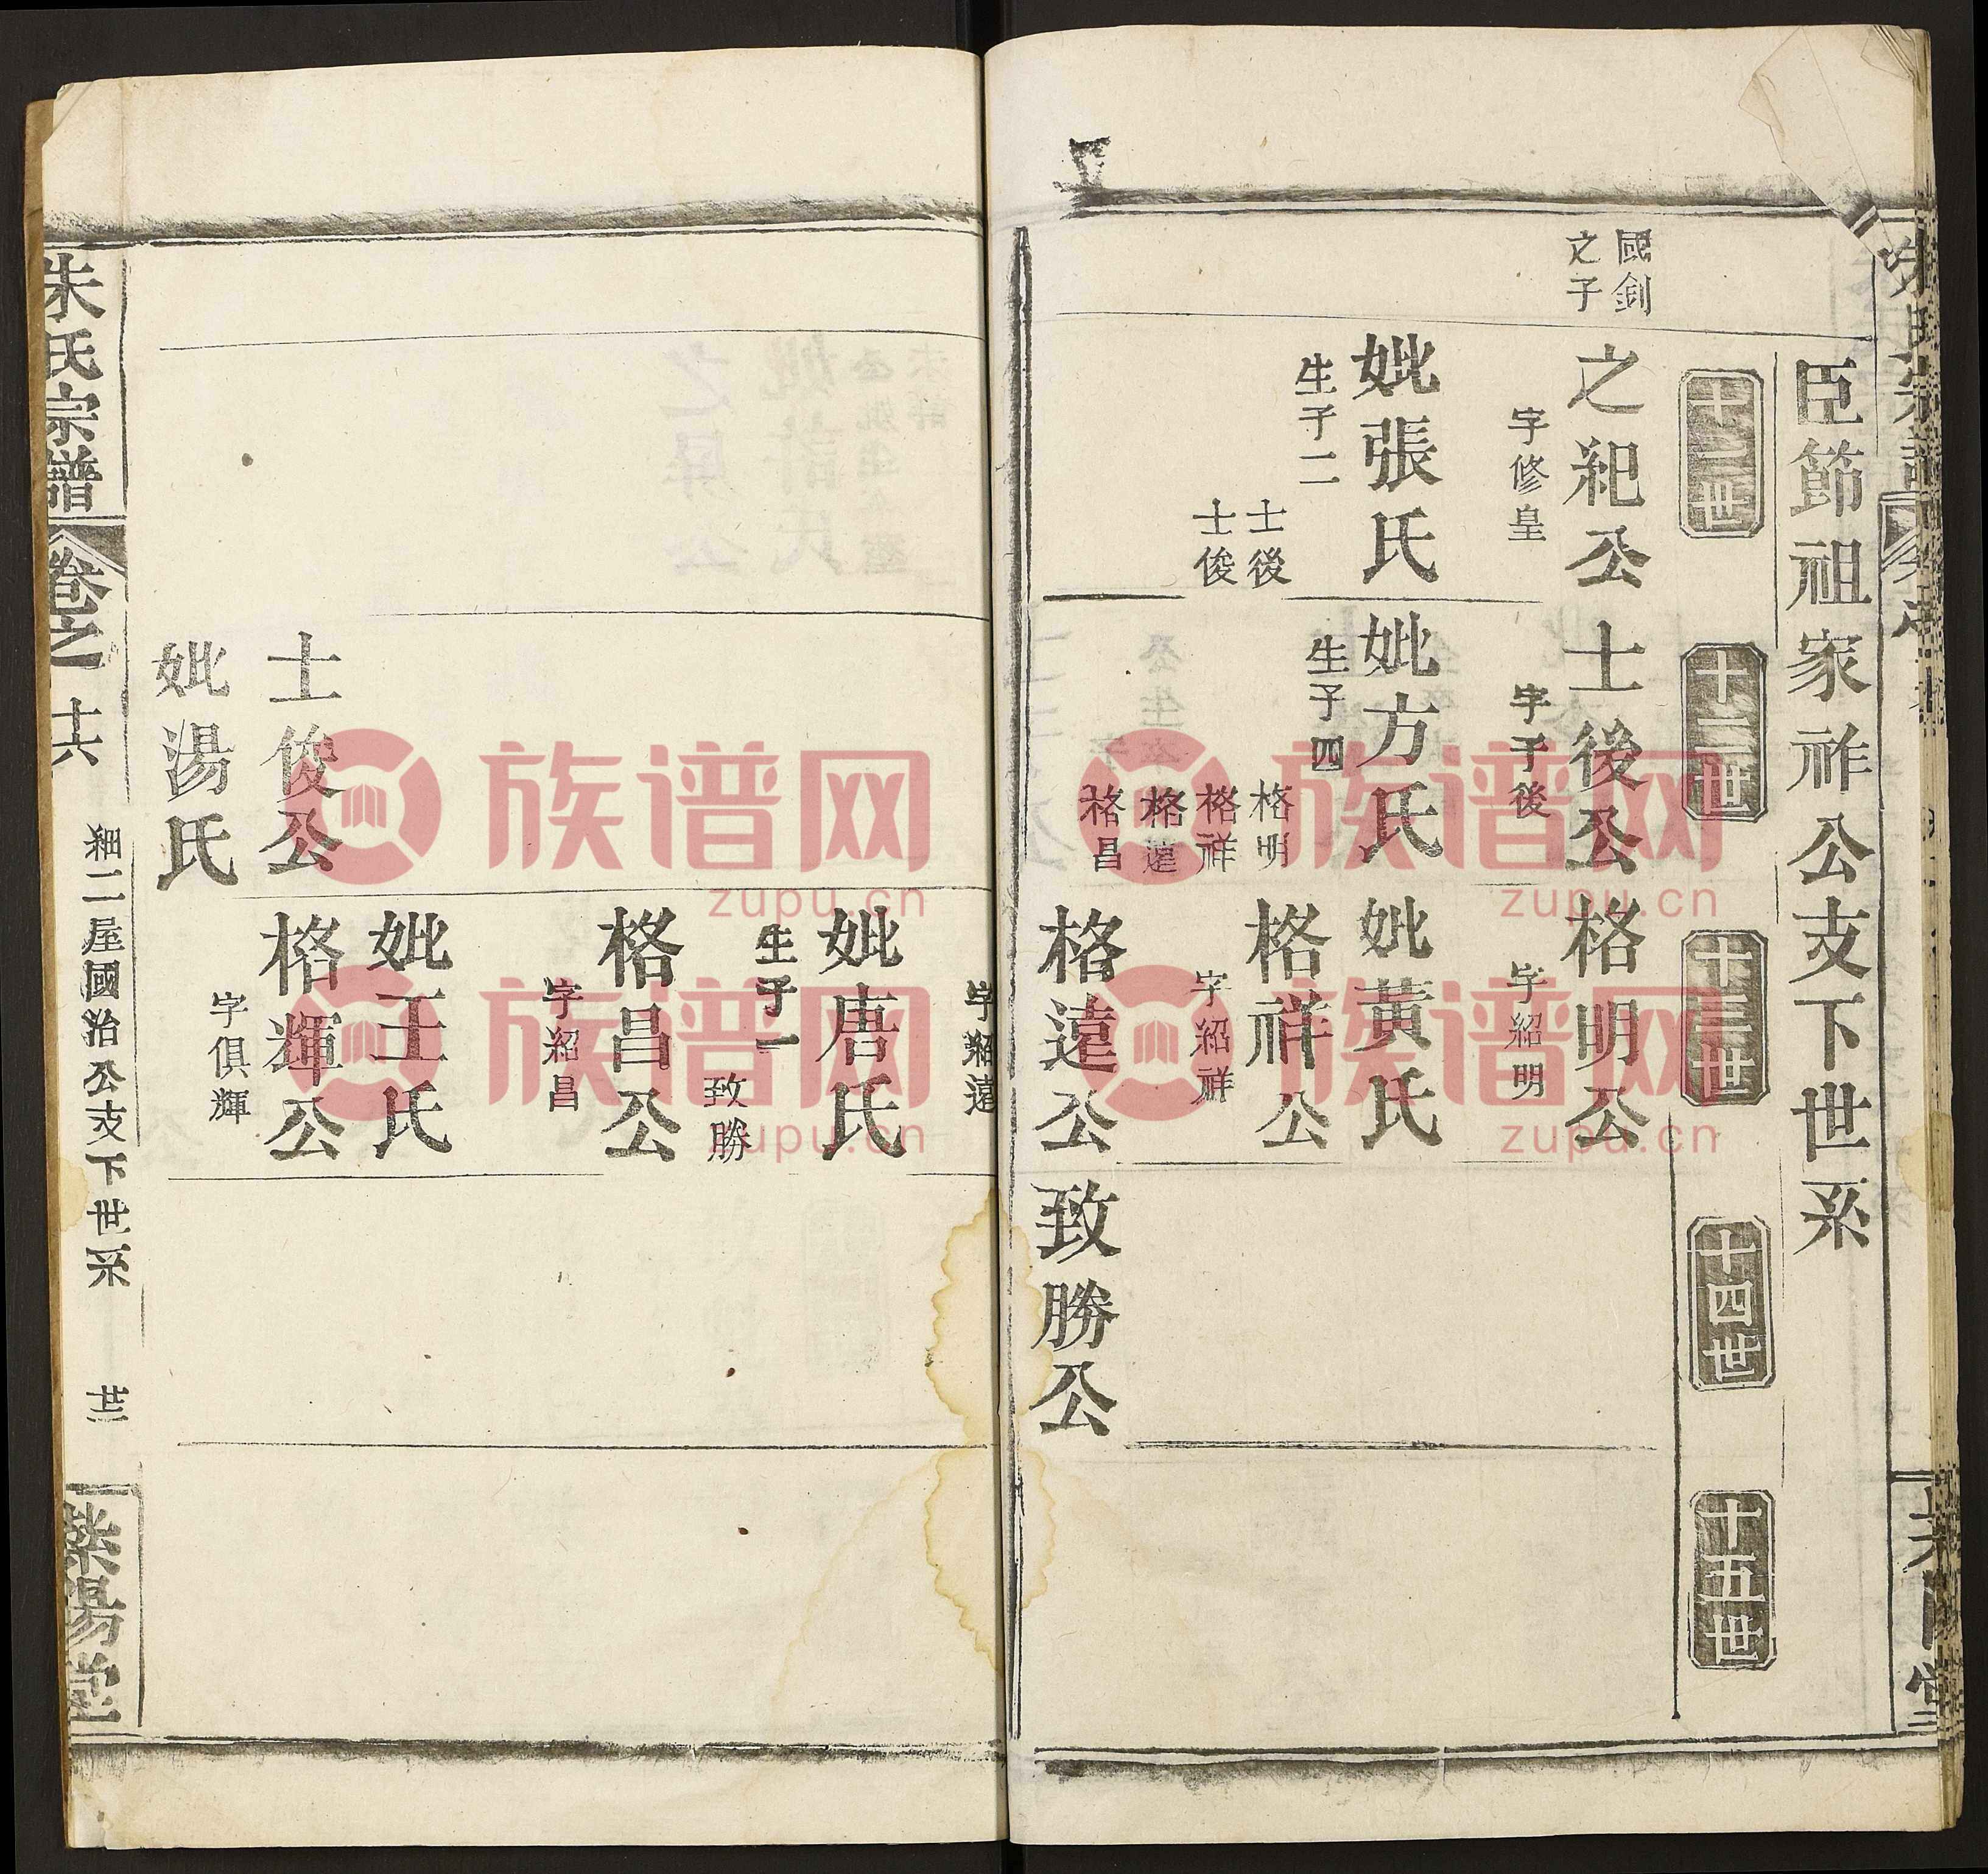 臣節祖家祚公支下世系
十一世
十二世
十三世
十四世
十五世
國釗
之子
之祀公
字修皇
妣張氏
生子二
士後
士俊
士後公
字于後
妣方氏
生子四
格明
格祥
格遠
格昌
格明公
字紹明
妣黃氏
格祥公
字紹祥
格遠公
致勝公
字紹遠
妣唐氏
生子一
致勝
格昌公
字紹昌
妣王氏
士俊公
妣湯氏
格輝公
字俱輝
朱氏宗譜
卷之十六
細二屋國治公支下世系
廿三
紫陽堂
族谱网
zupu.cn
族谱网
zupu.cn
族谱网
zupu.cn
族谱网
zupu.cn